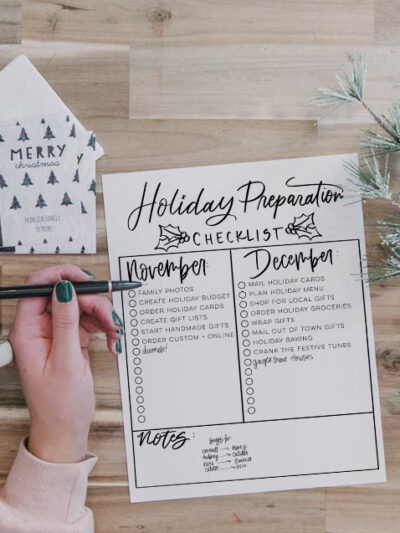 MERRY
christmas
FROM OUR FAMILY
TO YOURS
Holiday Preparation
CHECKLIST
November:
FAMILY PHOTOS
CREATE HOLIDAY BUDGET
ORDER HOLIDAY CARDS
CREATE GIFT LISTS
START HANDMADE GIFTS
ORDER CUSTOM + ONLINE
decorate!
December:
MAIL HOLIDAY CARDS
PLAN HOLIDAY MENU
SHOP FOR LOCAL GIFTS
ORDER HOLIDAY GROCERIES
WRAP GIFTS
MAIL OUT OF TOWN GIFTS
HOLIDAY BAKING
CRANK THE FESTIVE TUNES
Notes: